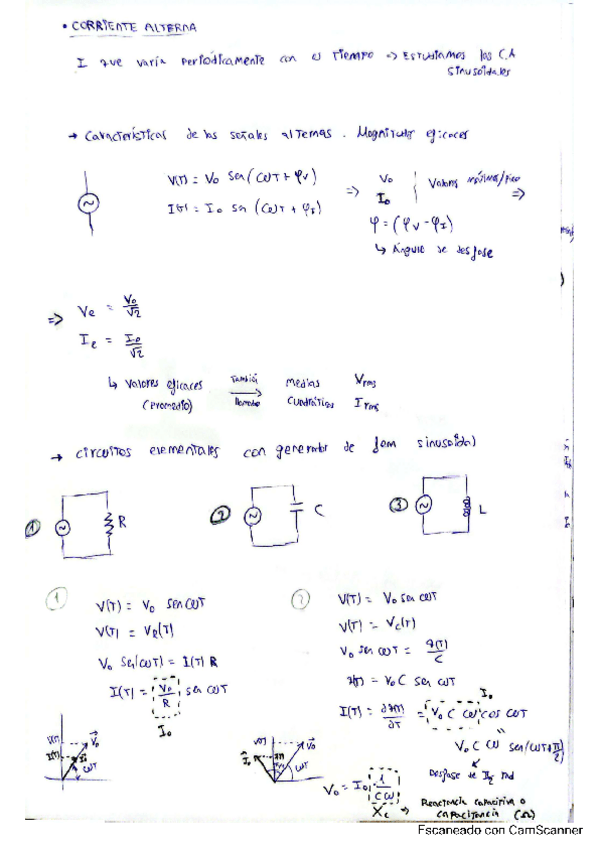 • CORRIENTE ALTERNA
I que varía periódicamente con el tiempo => Estudiamos las C.A
sinusoidales
→ Características de las señales alternas. Magnitudes eficaces
V(T) = V₀ sen(ωT + φv)
I(T) = I₀ sen(ωT + φI)
=>
V₀
I₀
Valores máximos/pico
=>
φ = (φv - φI)
↳ Ángulo de desfase
=> Ve = V₀/√2
Ie = I₀/√2
↳ Valores eficaces (promedio)
también llamado
medias cuadráticas
Vrms
Irms
→ circuitos elementales con generador de fem sinusoidal
① ~ R
② ~ C
③ ~ L
①
V(T) = V₀ sen ωT
V(T) = VR(T)
V₀ sen(ωT) = I(T) R
I(T) = V₀/R sen ωT
I₀
V(T)
I(T)
V₀
I₀
ωT
②
V(T) = V₀ sen ωT
V(T) = Vc(T)
V₀ sen ωT = q(T)/C
q(T) = V₀ C sen ωT
I₀
I(T) = dq(T)/dT = V₀ C ω cos ωT
V₀ C ω sen(ωT + π/2)
Desfase de π/2 rad
V(T)
I₀
V₀
ωT
V₀ = I₀ 1/Cω
Xc → Reactancia capacitiva o
capacitancia (Ω)
Escaneado con CamScanner